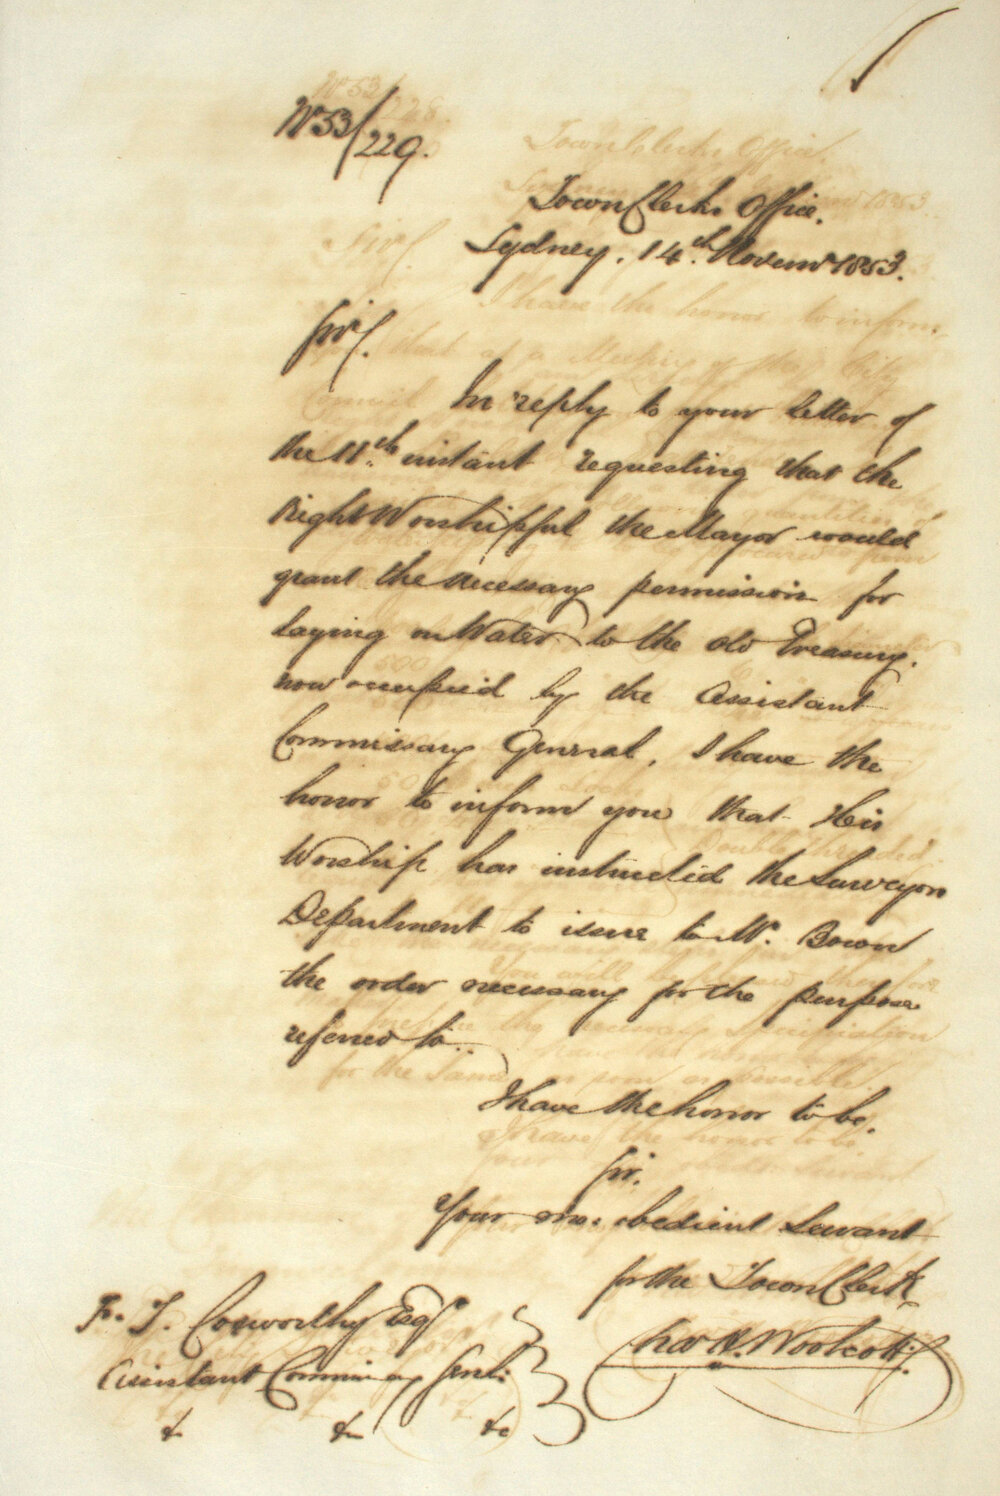 No 53/229.
Town Clerks Office.
Sydney. 14th Novemr 1853.
Sir,
In reply to your letter of
the 11th instant requesting that the
Right Worshipful the Mayor would
grant the necessary permission for
laying on Water to the old Treasury.
now occupied by the Assistant
Commissary General, I have the
honor to inform you that His
Worship has instructed the Surveyors
Department to issue to Mr. Bown
the order necessary for the purpose
referred to..
I have the honor to be.
Sir.
Your mo: obedient Servant
for the Town Clerk
Chas H. Woolcott.
To. T. Coxworthy Esqr
Assistant Commissary Genl:
& & &c